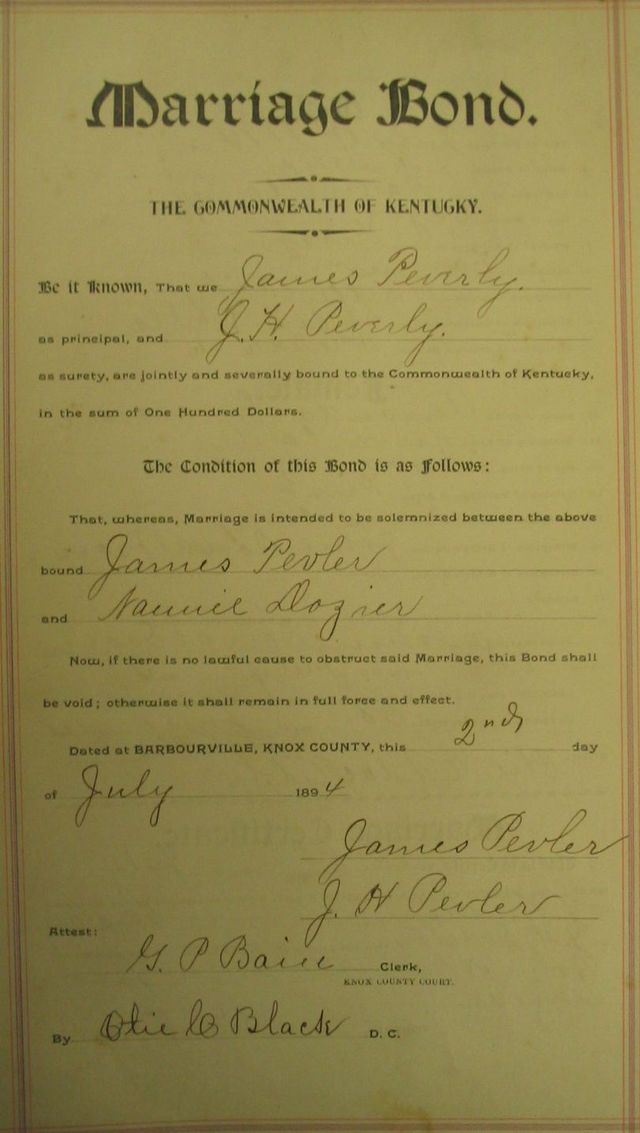 Marriage Bond.
THE COMMONWEALTH OF KENTUCKY.
Be it Known, That we James Peverly.
as principal, and J. H. Peverly.
as surety, are jointly and severally bound to the Commonwealth of Kentucky,
in the sum of One Hundred Dollars.
The Condition of this Bond is as Follows:
That, whereas, Marriage is intended to be solemnized between the above
bound James Pevler
and Nannie Dozier
Now, if there is no lawful cause to obstruct said Marriage, this Bond shall
be void; otherwise it shall remain in full force and effect.
Dated at BARBOURVILLE, KNOX COUNTY, this 2nd day
of July 1894
James Pevler
J. H Pevler
Attest:
G. P Bain Clerk,
KNOX COUNTY COURT.
By Olie C Black D. C.